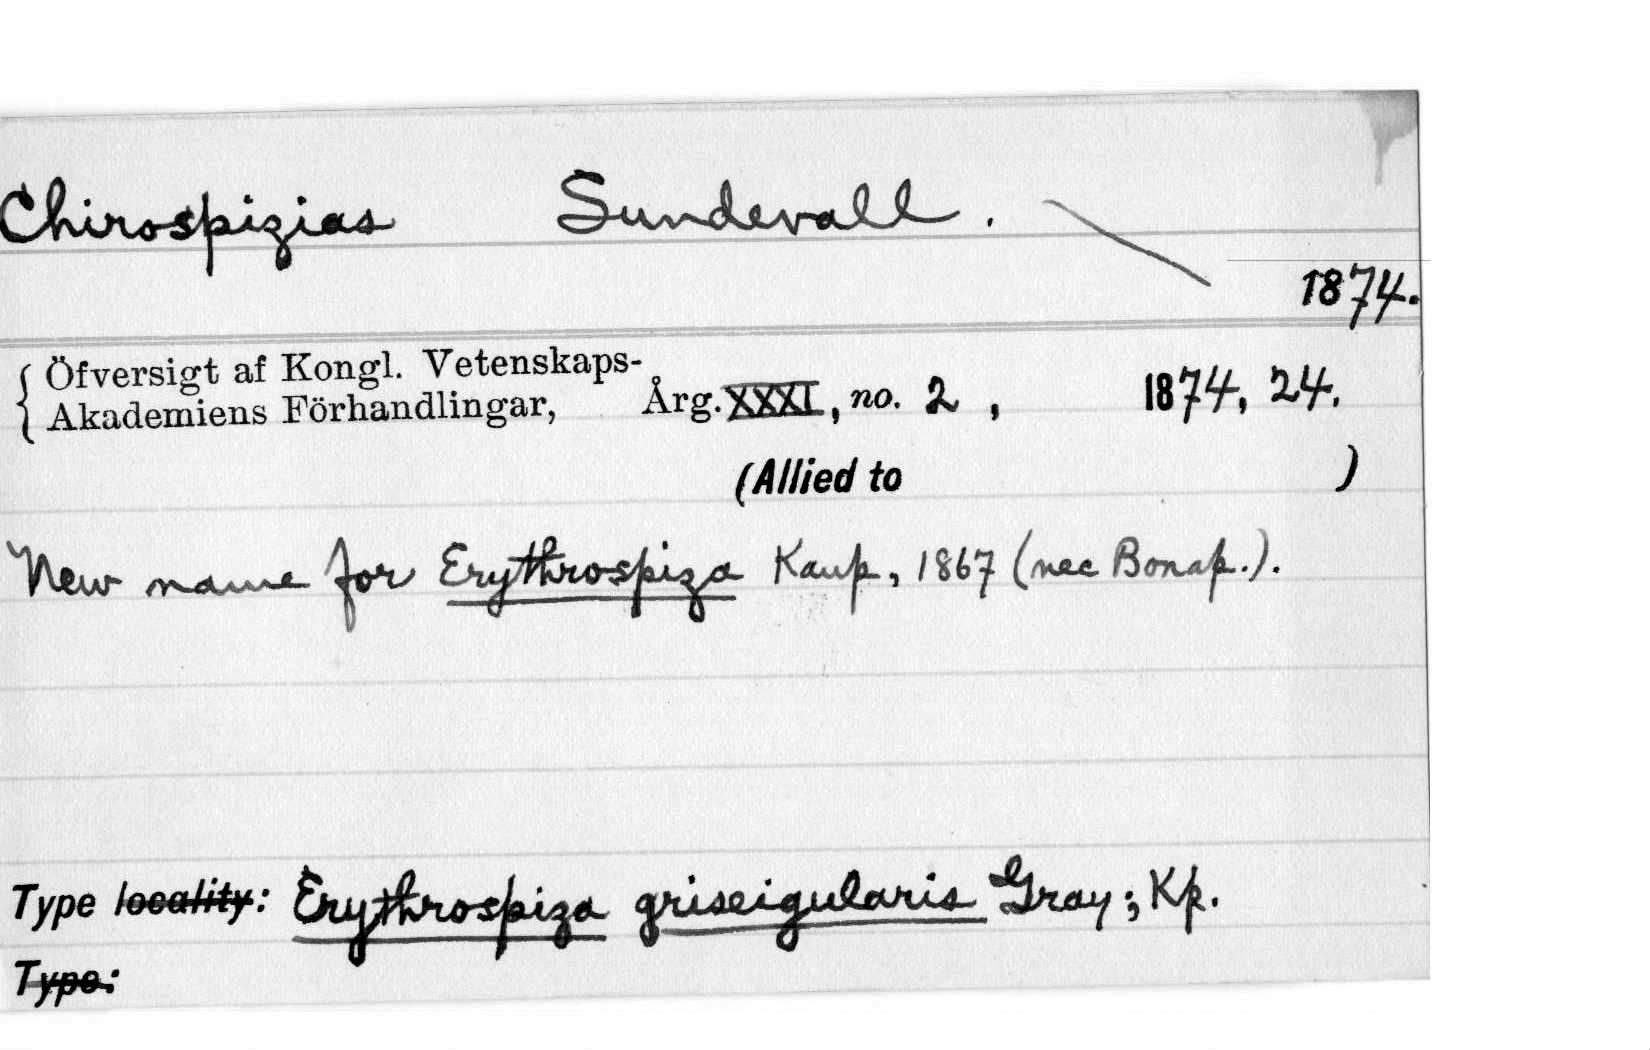 Chirospizias Sundevall.
1874.
Öfversigt af Kongl. Vetenskaps-
Akademiens Förhandlingar, Årg. XXXI, no. 2, 1874, 24.
(Allied to )
New name for Erythrospiza Kaup, 1867 (nec Bonap.).
Type locality: Erythrospiza griseigularis Gray; Kp.
Type: